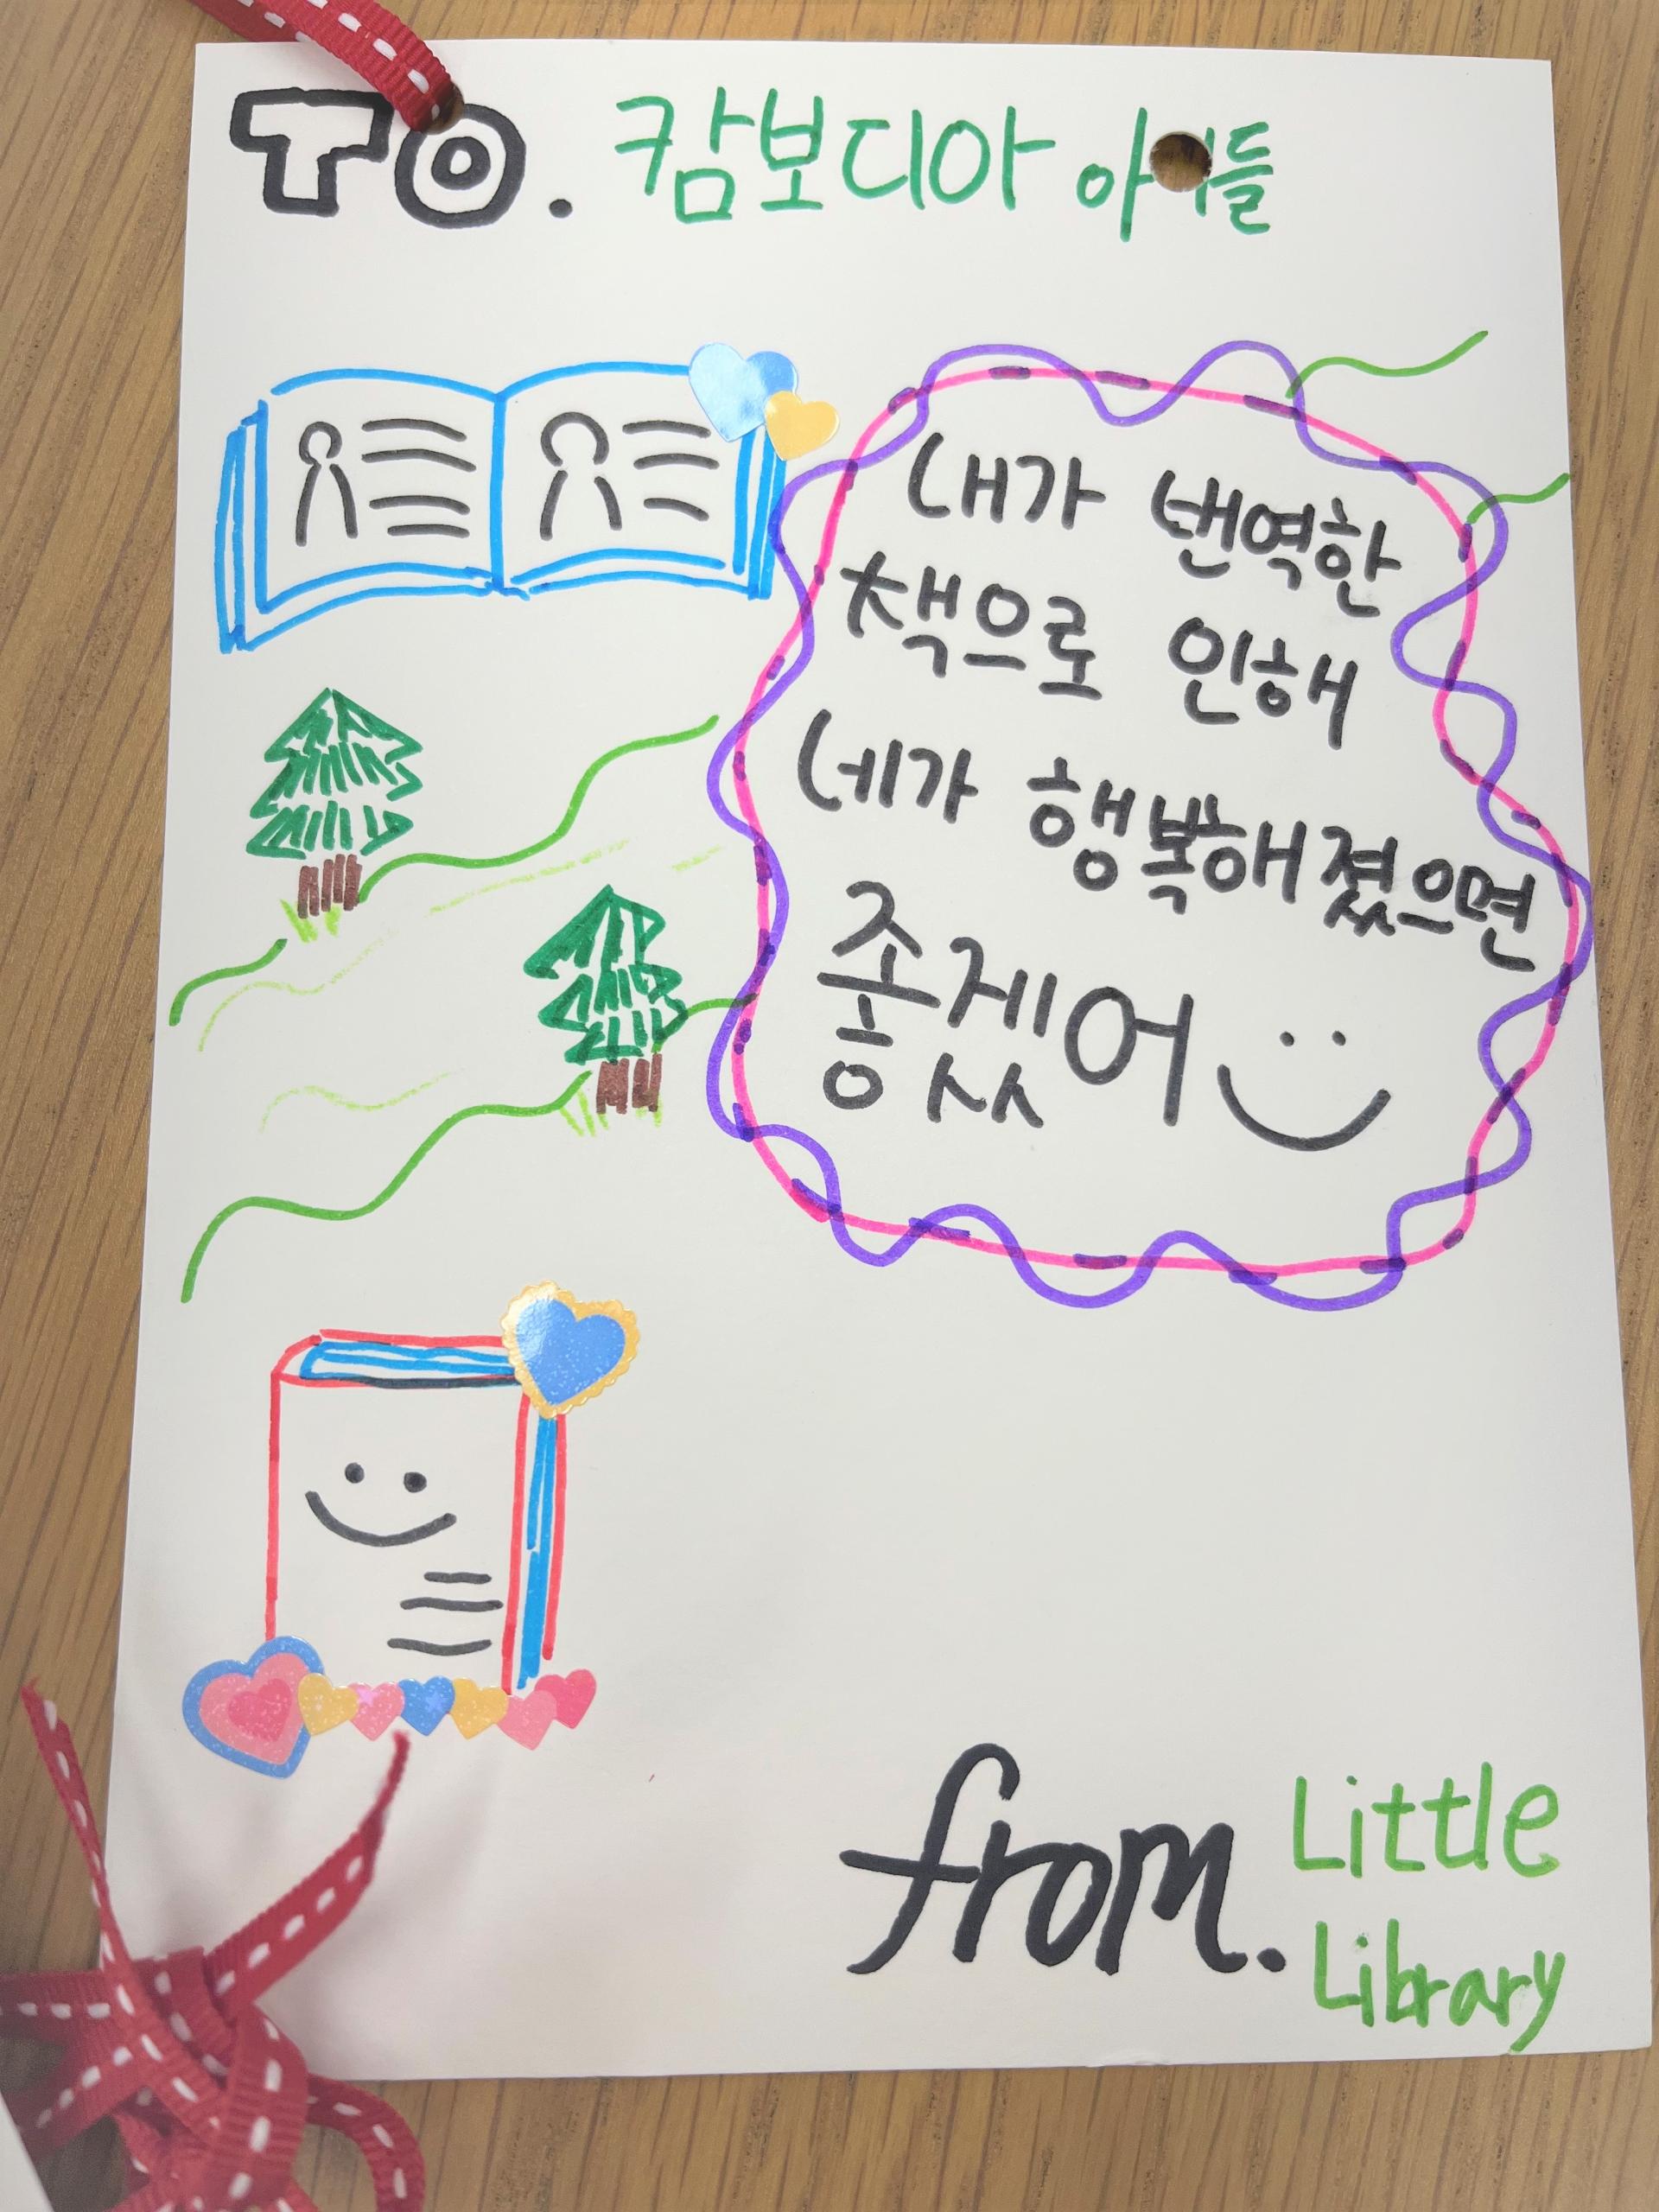 To. 캄보디아 아이들
내가 번역한
책으로 인해
네가 행복해졌으면
좋겠어
from. Little
Library